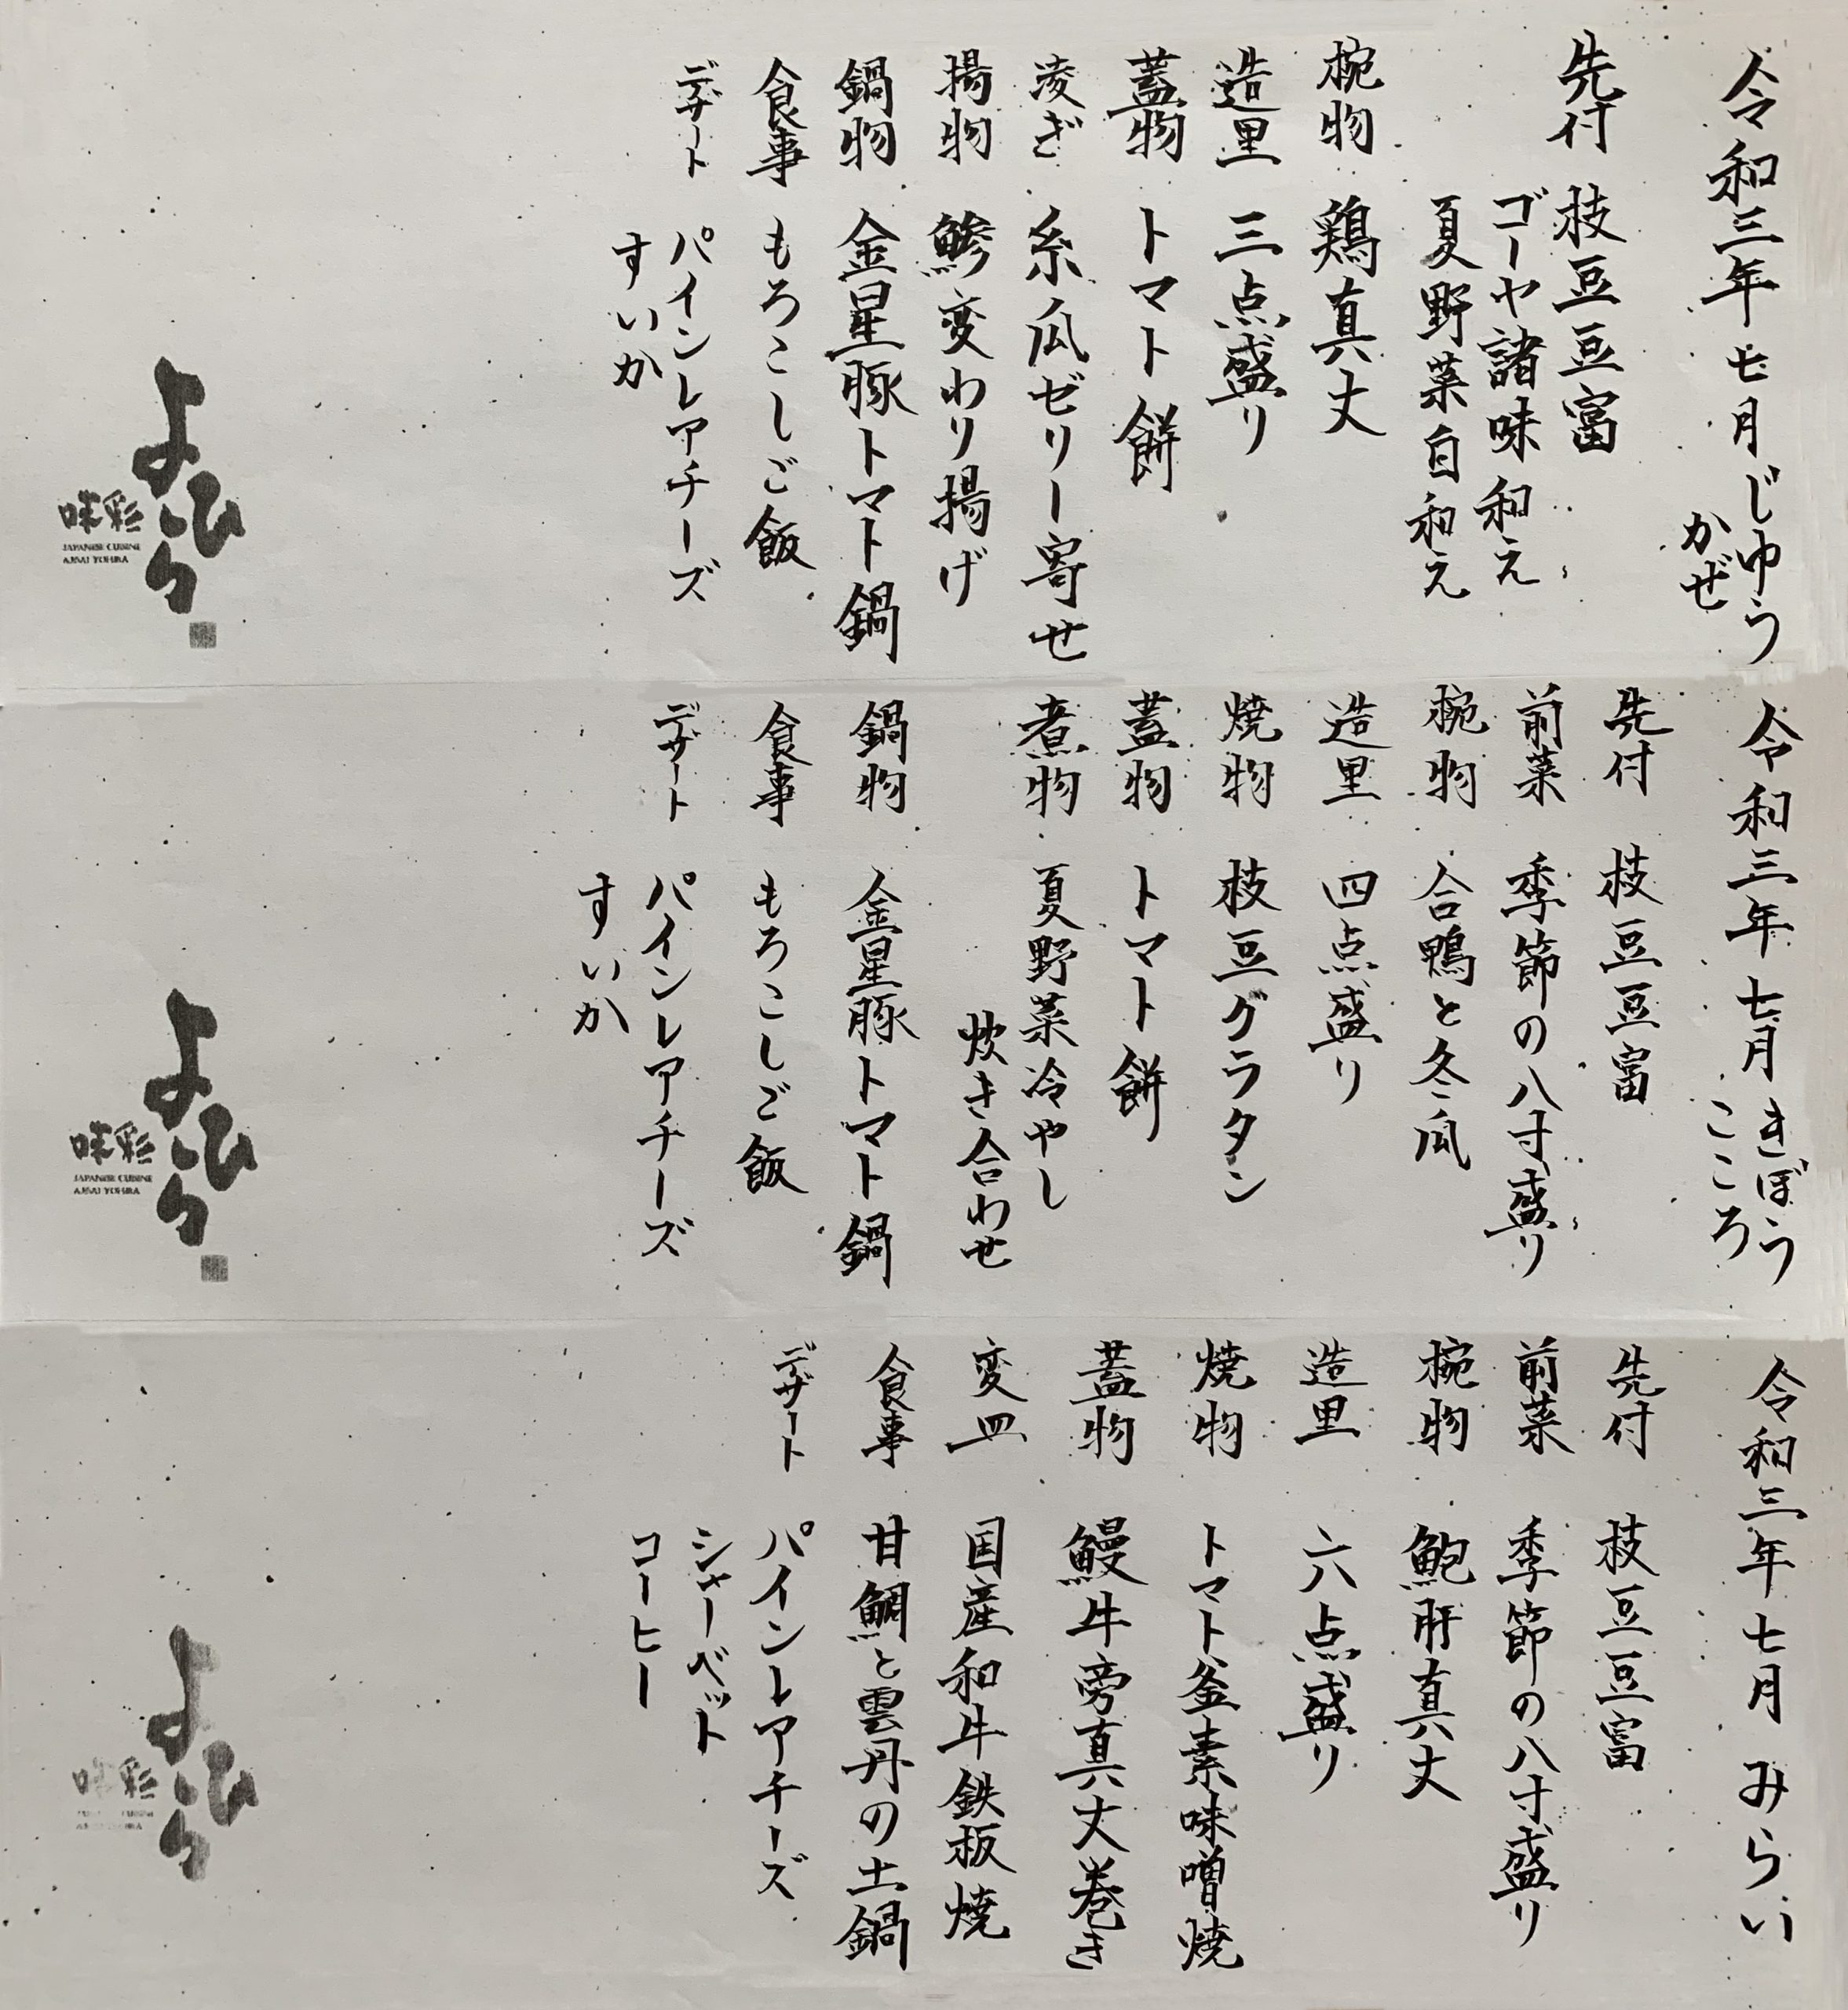 令和三年七月じゆう
かぜ
先付 枝豆豆富
ゴーヤ諸味和え
夏野菜白和え
椀物 鶏真丈
造里 三点盛り
蓋物 トマト餅
凌ぎ 糸瓜ゼリー寄せ
揚物 鯵変わり揚げ
鍋物 金星豚トマト鍋
食事 もろこしご飯
デザート パインレアチーズ
すいか
よひら
味彩
JAPANESE CUISINE
AJISAI YOHIRA
令和三年七月 きぼう
こころ
先付 枝豆豆富
前菜 季節の八寸盛り
椀物 合鴨と冬瓜
造里 四点盛り
焼物 枝豆グラタン
蓋物 トマト餅
煮物 夏野菜冷やし
炊き合わせ
鍋物 金星豚トマト鍋
食事 もろこしご飯
デザート パインレアチーズ
すいか
よひら
味彩
JAPANESE CUISINE
AJISAI YOHIRA
令和三年七月 みらい
先付 枝豆豆富
前菜 季節の八寸盛り
椀物 鮑肝真丈
造里 六点盛り
焼物 トマト釜素味噌焼
蓋物 鰻牛旁真丈巻き
変皿 国産和牛鉄板焼
食事 甘鯛と雲丹の土鍋
デザート パインレアチーズ
シャーベット
コーヒー
よひら
味彩